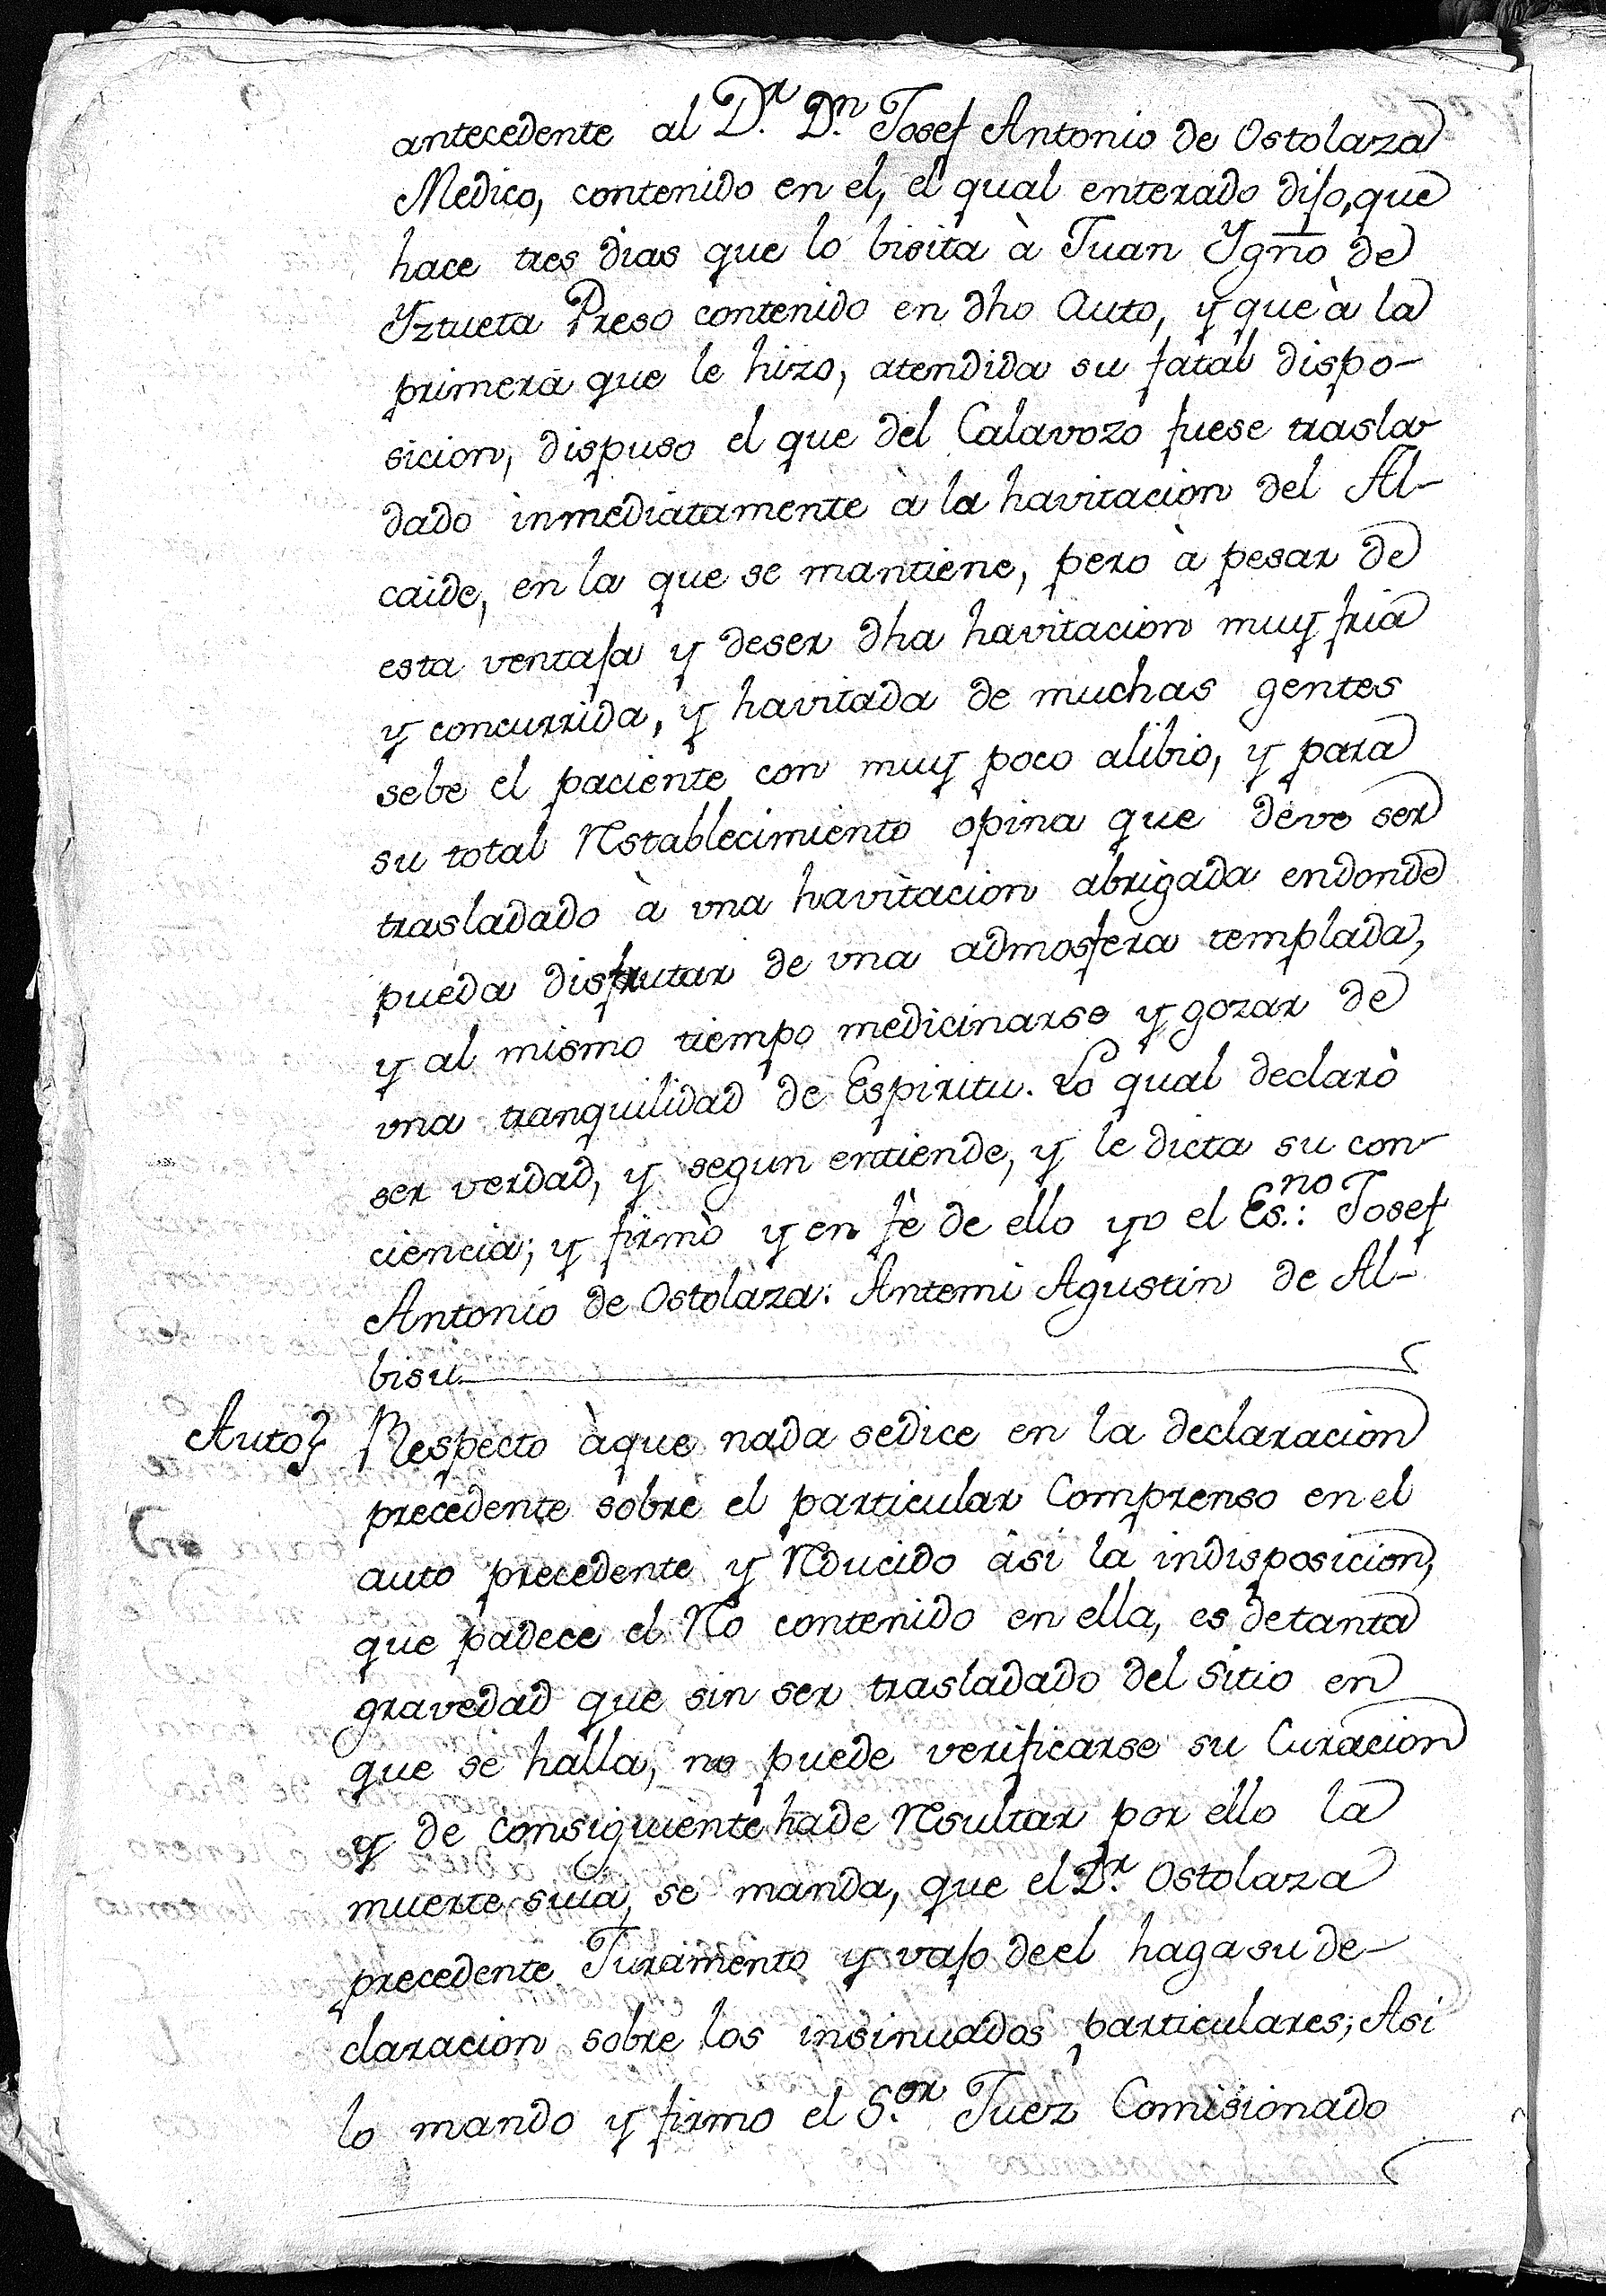 antecedente al D.r D.n Josef Antonio de Ostolaza
Medico, contenido en el, el qual enterado dijo, que
hace tres dias que lo bisita à Juan Ygn̅o de
Yztueta Preso contenido en dho Auto, y que à la
primera que le hizo, atendida su fatal dispo-
sicion, dispuso el que del Calavozo fuese trasla-
dado inmediatamente à la havitacion del Al-
caide, en la que se mantiene, pero à pesar de
esta ventaja y deser dha havitacion muy fria
y concurrida, y havitada de muchas gentes
sebe el paciente con muy poco alibio, y para
su total Restablecimiento opina que deve ser
trasladado à vna havitacion abrigada endonde
pueda disfrutar de vna admosfera templada,
y al mismo tiempo medicinarse y gozar de
vna tranquilidad de Espiritu. Lo qual declarò
ser verdad, y segun entiende, y le dicta su con-
ciencia; y firmò y en fè de ello yo el Es.no: Josef
Antonio de Ostolaza: Antemi Agustin de Al-
bisu
Auto} Respecto àque nada sedice en la declaracion
precedente sobre el particular Comprenso en el
auto precedente y Rducido àsi la indisposicion,
que padece el Ro contenido en ella, es detanta
gravedad que sin ser trasladado del sitio en
que se halla, no puede verificarse su Curacion
y de consiguiente hade Resultar por ello la
muerte suia, se manda, que el D.r Ostolaza
precedente Juramento y vajo deel haga su de-
claracion sobre los insinuados particulares; Asi
lo mando y firmo el S.or Juez Comisionado